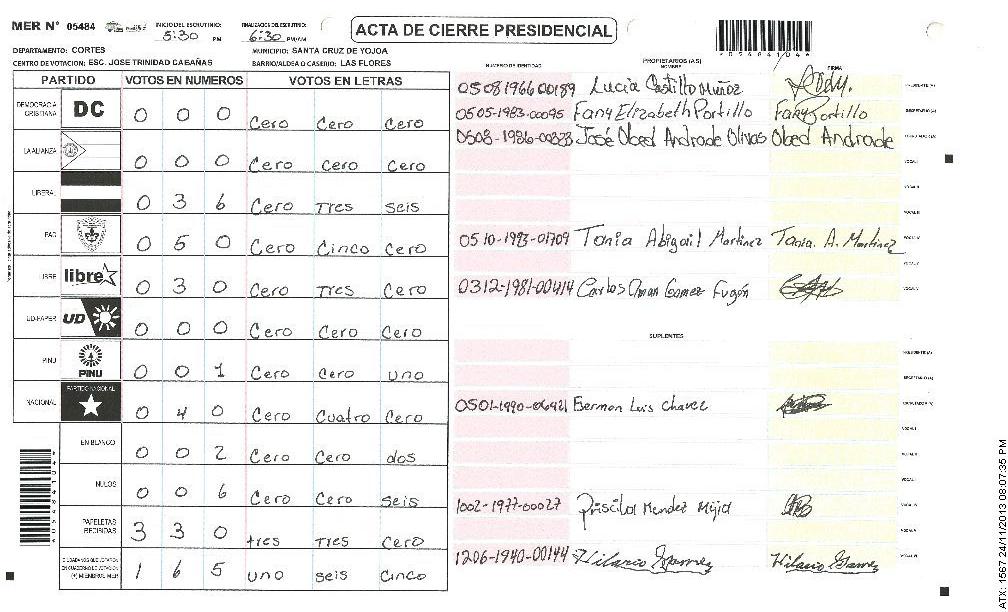 MER N° 05484
INICIO DEL ESCRUTINIO:
5:30 PM
FINALIZACION DEL ESCRUTINIO:
6:30 PM/AM
ACTA DE CIERRE PRESIDENCIAL
DEPARTAMENTO: CORTES
MUNICIPIO: SANTA CRUZ DE YOJOA
CENTRO DE VOTACION: ESC. JOSE TRINIDAD CABAÑAS
BARRIO/ALDEA O CASERIO: LAS FLORES
PARTIDO VOTOS EN NUMEROS VOTOS EN LETRAS
DEMOCRACIA CRISTIANA DC 0 0 0 Cero Cero Cero
LA ALIANZA 0 0 0 Cero Cero Cero
LIBERAL 0 3 6 Cero Tres seis
PAC 0 5 0 Cero Cinco Cero
LIBRE libre 0 3 0 Cero Tres Cero
UD-FAPER UD 0 0 0 Cero Cero Cero
PINU PINU 0 0 1 Cero Cero uno
NACIONAL PARTIDO NACIONAL 0 4 0 Cero Cuatro Cero
EN BLANCO 0 0 2 Cero Cero dos
NULOS 0 0 6 Cero Cero seis
PAPELETAS RECIBIDAS 3 3 0 tres Tres Cero
CIUDADANOS QUE VOTARON EN CUADERNO DE VOTACION (+) MIEMBROS MER 1 6 5 uno seis Cinco
PROPIETARIOS (AS)
NUMERO DE IDENTIDAD NOMBRE FIRMA
0508196600189 Lucia Castillo Muñoz PRESIDENTE (A)
0505-1983-00095 Fany Elizabeth Portillo Fany Portillo SECRETARIO (A)
0508-1986-00323 José Obed Andrade Olivas Obed Andrade
VOCAL I
VOCAL II
VOCAL III
0510-1993-01709 Tania Abigail Martinez Tania. A. Martinez VOCAL IV
VOCAL V
0312-1981-00414 Carlos Oman Gomez Fugón
SUPLENTES
PRESIDENTE (A)
SECRETARIO (A)
0501-1990-06421 German Luis Chavez ESCRUTADOR (A)
VOCAL I
VOCAL II
VOCAL III
1002-1977-00027 Priscila Mendez Mejia VOCAL IV
VOCAL V
1206-1940-00144 Hilario Gamez Hilario Gamez VOCAL VI
*05484104*
*05484104*
ATX: 1567 24/11/2013 08:07:35 PM